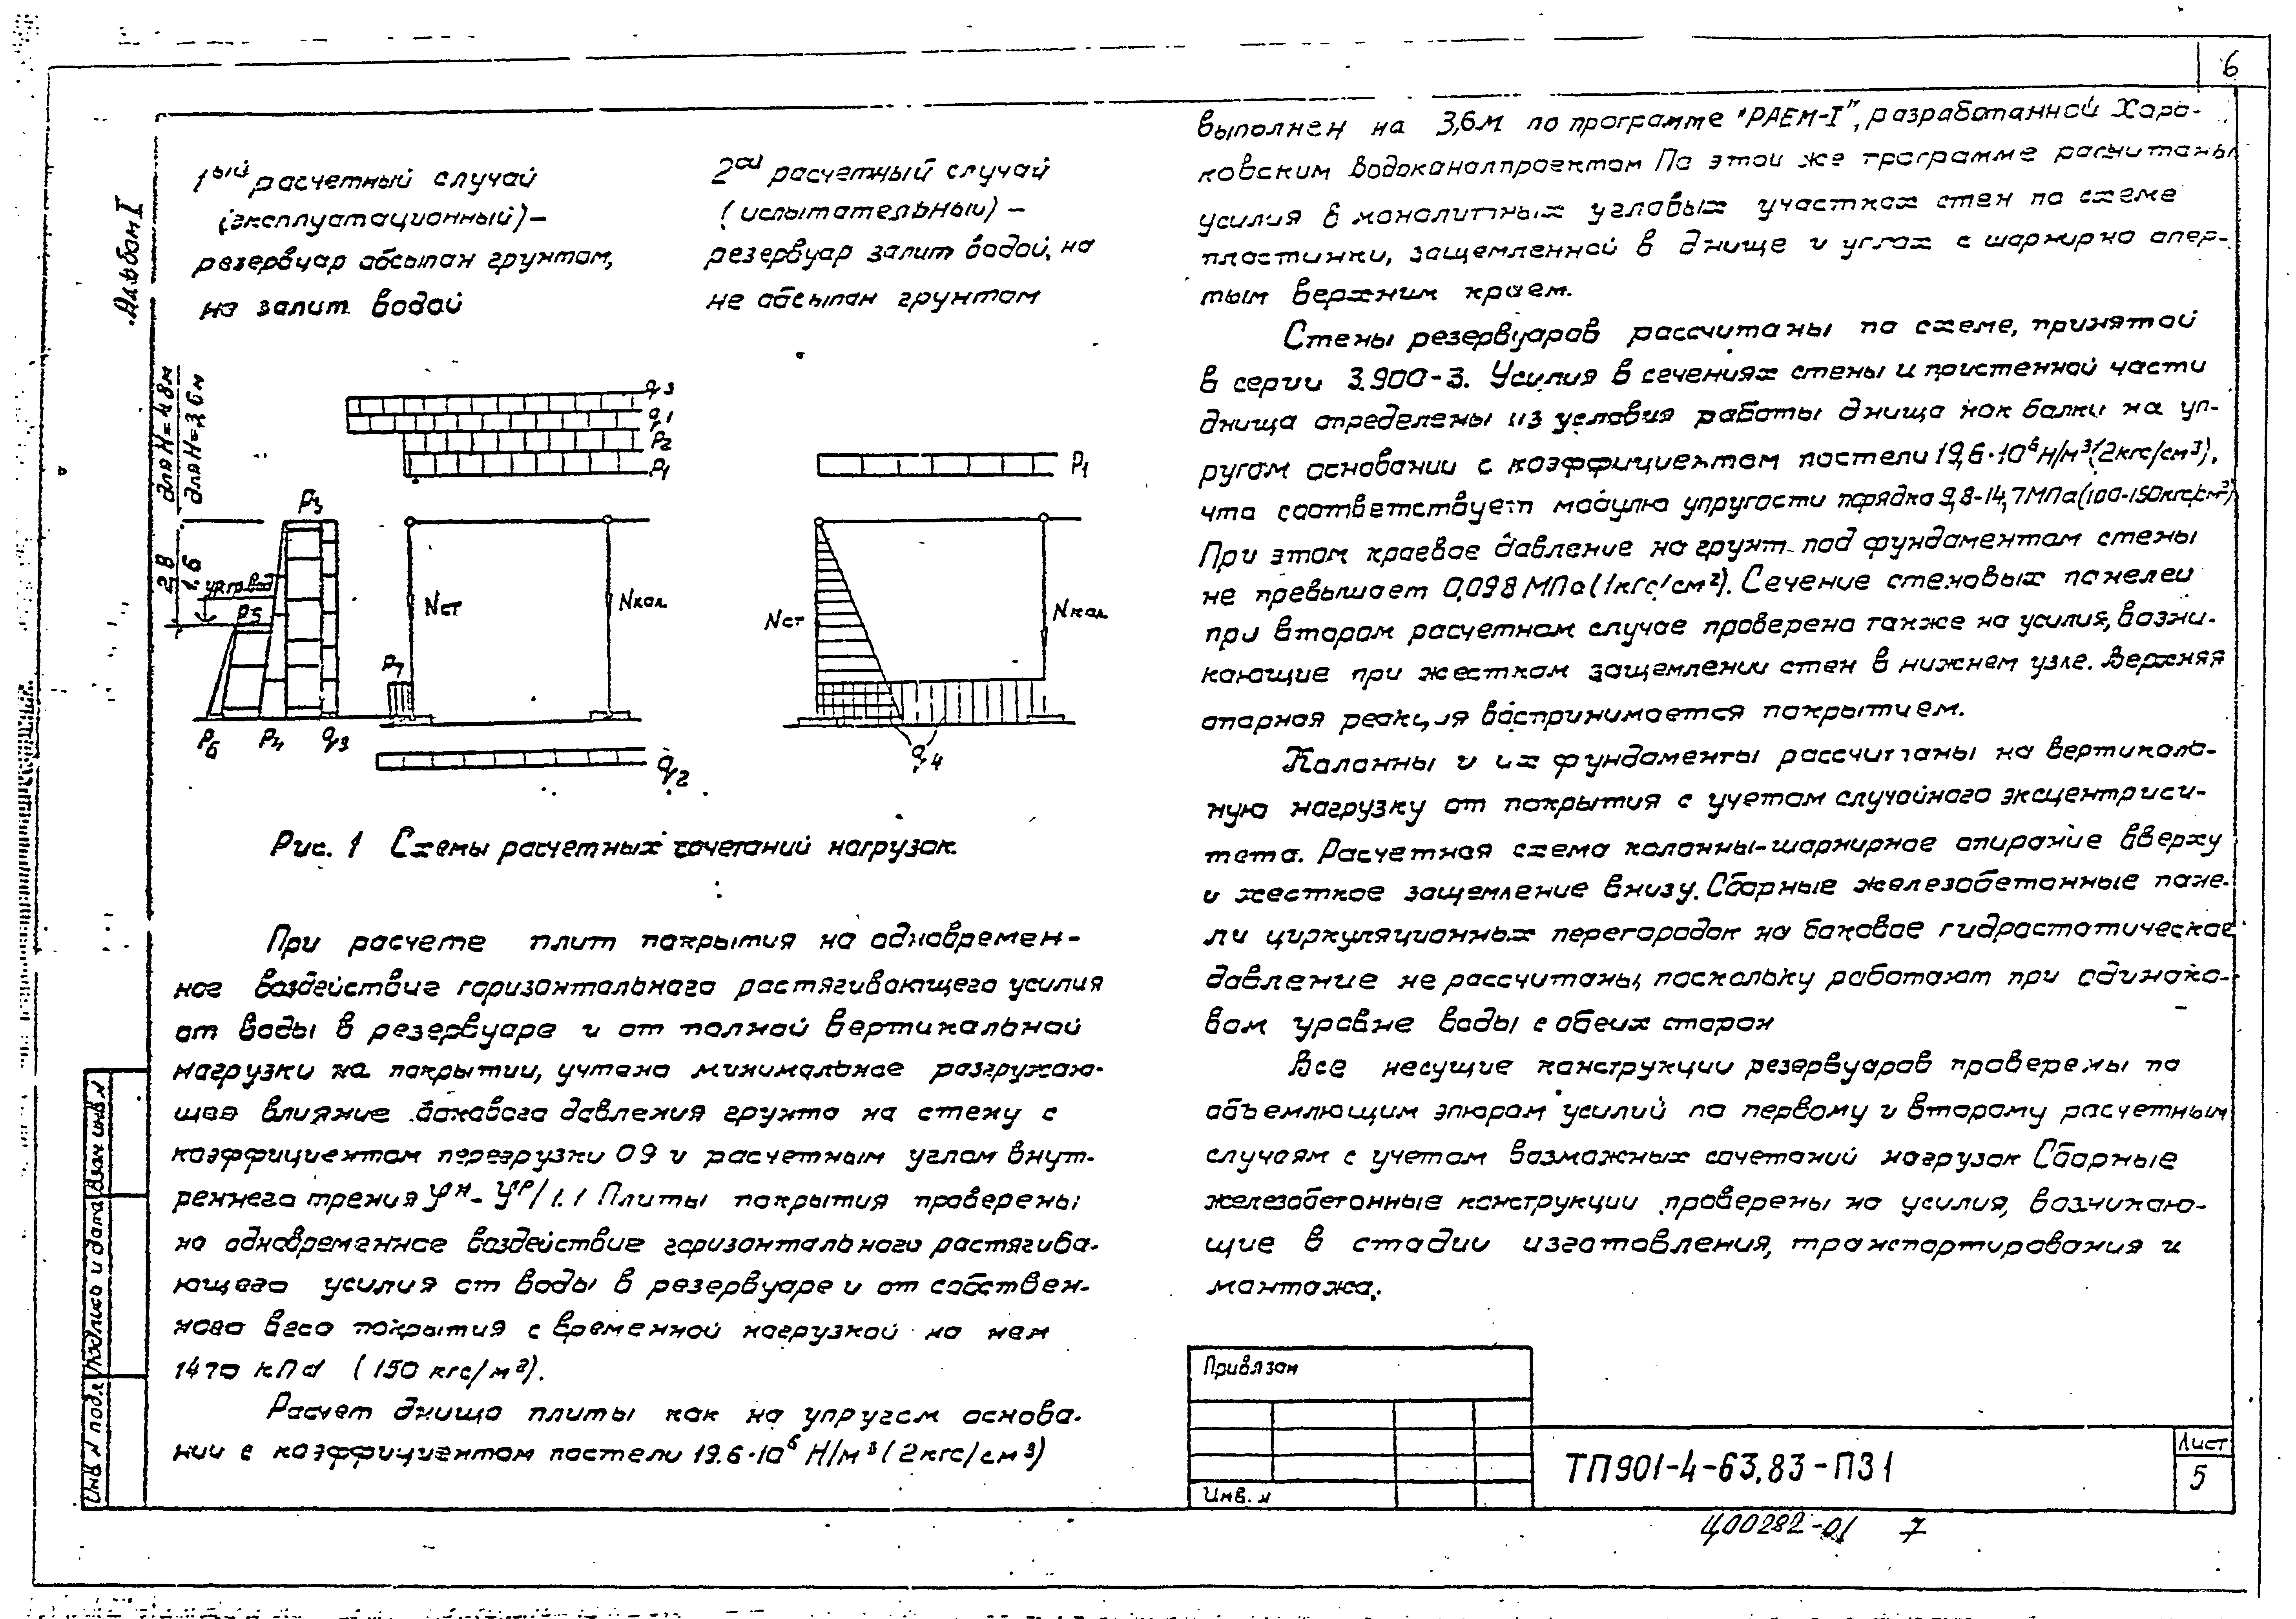 6
Альбом I
1ый расчетный случай
(эксплуатационный) –
резервуар обсыпан грунтом,
но залит водой
2ой расчетный случай
(испытательный) –
резервуар залит водой, но
не обсыпан грунтом
для H=4.8м
для H=3,6м
2.8
1.6
ур.гр.вод
P3
P5
P6
P4
q3
q3
q1
P2
P1
Nст
Nкол.
P7
q2
P1
Nст
Nкол.
q4
Рис. 1 Схемы расчетных сочетаний нагрузок.
При расчете плит покрытия на одновремен-
ное воздействие горизонтального растягивающего усилия
от воды в резервуаре и от полной вертикальной
нагрузки на покрытии, учтено минимальное разгружаю-
щее влияние бокового давления грунта на стену с
коэффициентом перегрузки 0.9 и расчетным углом внут-
реннего трения φн - φр/1.1 Плиты покрытия проверены
на одновременное воздействие горизонтального растягива-
ющего усилия от воды в резервуаре и от собствен-
ного веса покрытия с временной нагрузкой на нем
1470 кПа (150 кгс/м2).
Расчет днища плиты как на упругом основа-
нии с коэффициентом постели 19.6·10⁶ Н/м³ (2кгс/см³)
выполнен на 3,6м по программе "РАЕМ-I", разработанной Харь-
ковским Водоканалпроектом По этой же программе расчитаны
усилия в монолитных угловых участках стен по схеме
пластинки, защемленной в днище и углах с шарнирно опер-
тым верхним краем.
Стены резервуаров рассчитаны по схеме, принятой
в серии 3.900-3. Усилия в сечениях стены и пристенной части
днища определены из условия работы днища как балки на уп-
ругом основании с коэффициентом постели 19,6·10⁶Н/м³(2кгс/см³),
что соответствует модулю упругости порядка 9,8-14,7МПа(100-150кгс/см²)
При этом краевое давление на грунт под фундаментом стены
не превышает 0.098 МПа (1кгс/см²). Сечение стеновых панелей
при втором расчетном случае проверено также на усилия, возни-
кающие при жестком защемлении стен в нижнем узле. Верхняя
опорная реакция воспринимается покрытием.
Колонны и их фундаменты рассчитаны на вертикаль-
ную нагрузку от покрытия с учетом случайного эксцентриси-
тета. Расчетная схема колонны-шарнирное опирание вверху
и жесткое защемление внизу. Сборные железобетонные пане-
ли циркуляционных перегородок на боковое гидростатическое
давление не рассчитаны, поскольку работают при одинако-
вом уровне воды с обеих сторон
Все несущие конструкции резервуаров проверены по
объемлющим эпюрам усилий по первому и второму расчетным
случаям с учетом возможных сочетаний нагрузок Сборные
железобетонные конструкции проверены на усилия, возникаю-
щие в стадии изготовления, транспортирования и
монтажа.
Взам инв N
Подпись и дата
Инв N подл
Привязан
Инв. N
ТП901-4-63,83-ПЗ1
Лист
5
Ц00282-01 7